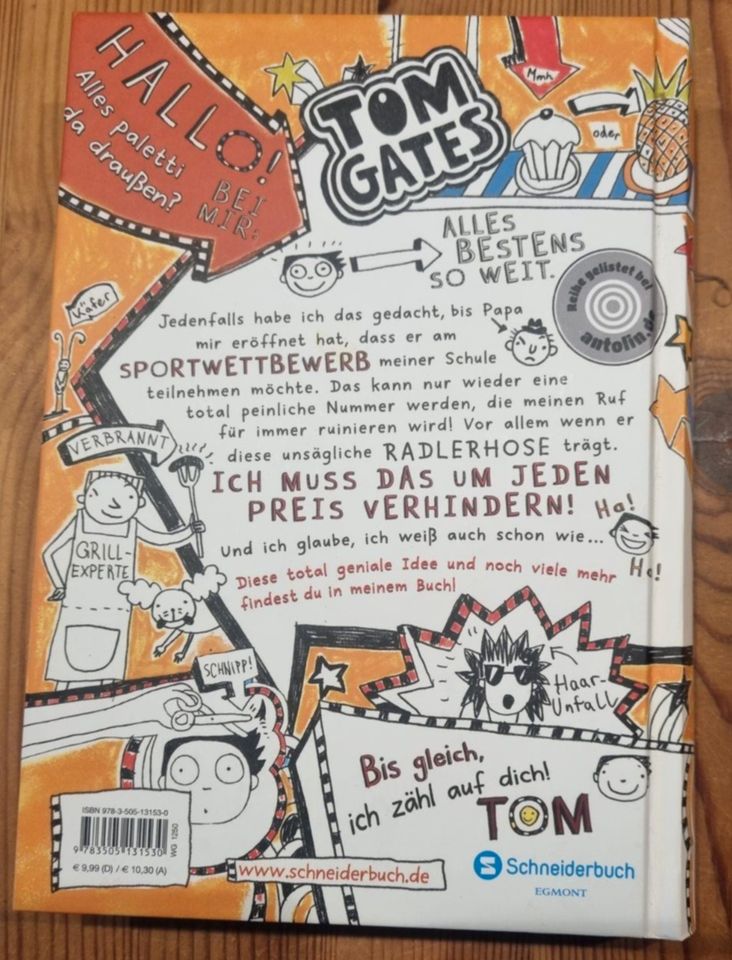 HALLO!
Alles paletti
da draußen?
BEI
MIR:
TOM
GATES
Mmh
oder
ALLES
BESTENS
SO WEIT.
Reihe gelistet bei
antolin.de
Käfer
Jedenfalls habe ich das gedacht, bis Papa
mir eröffnet hat, dass er am
SPORTWETTBEWERB meiner Schule
teilnehmen möchte. Das kann nur wieder eine
total peinliche Nummer werden, die meinen Ruf
für immer ruinieren wird! Vor allem wenn er
diese unsägliche RADLERHOSE trägt.
ICH MUSS DAS UM JEDEN
PREIS VERHINDERN!
Und ich glaube, ich weiß auch schon wie...
Ha!
Ha!
Diese total geniale Idee und noch viele mehr
findest du in meinem Buch!
VERBRANNT
GRILL-
EXPERTE
SCHNIPP!
Haar-
Unfall
Bis gleich,
ich zähl auf dich!
TOM
ISBN 978-3-505-13153-0
9 783505 131530
WG 1250
€ 9,99 (D) / € 10,30 (A)
www.schneiderbuch.de
S Schneiderbuch
EGMONT